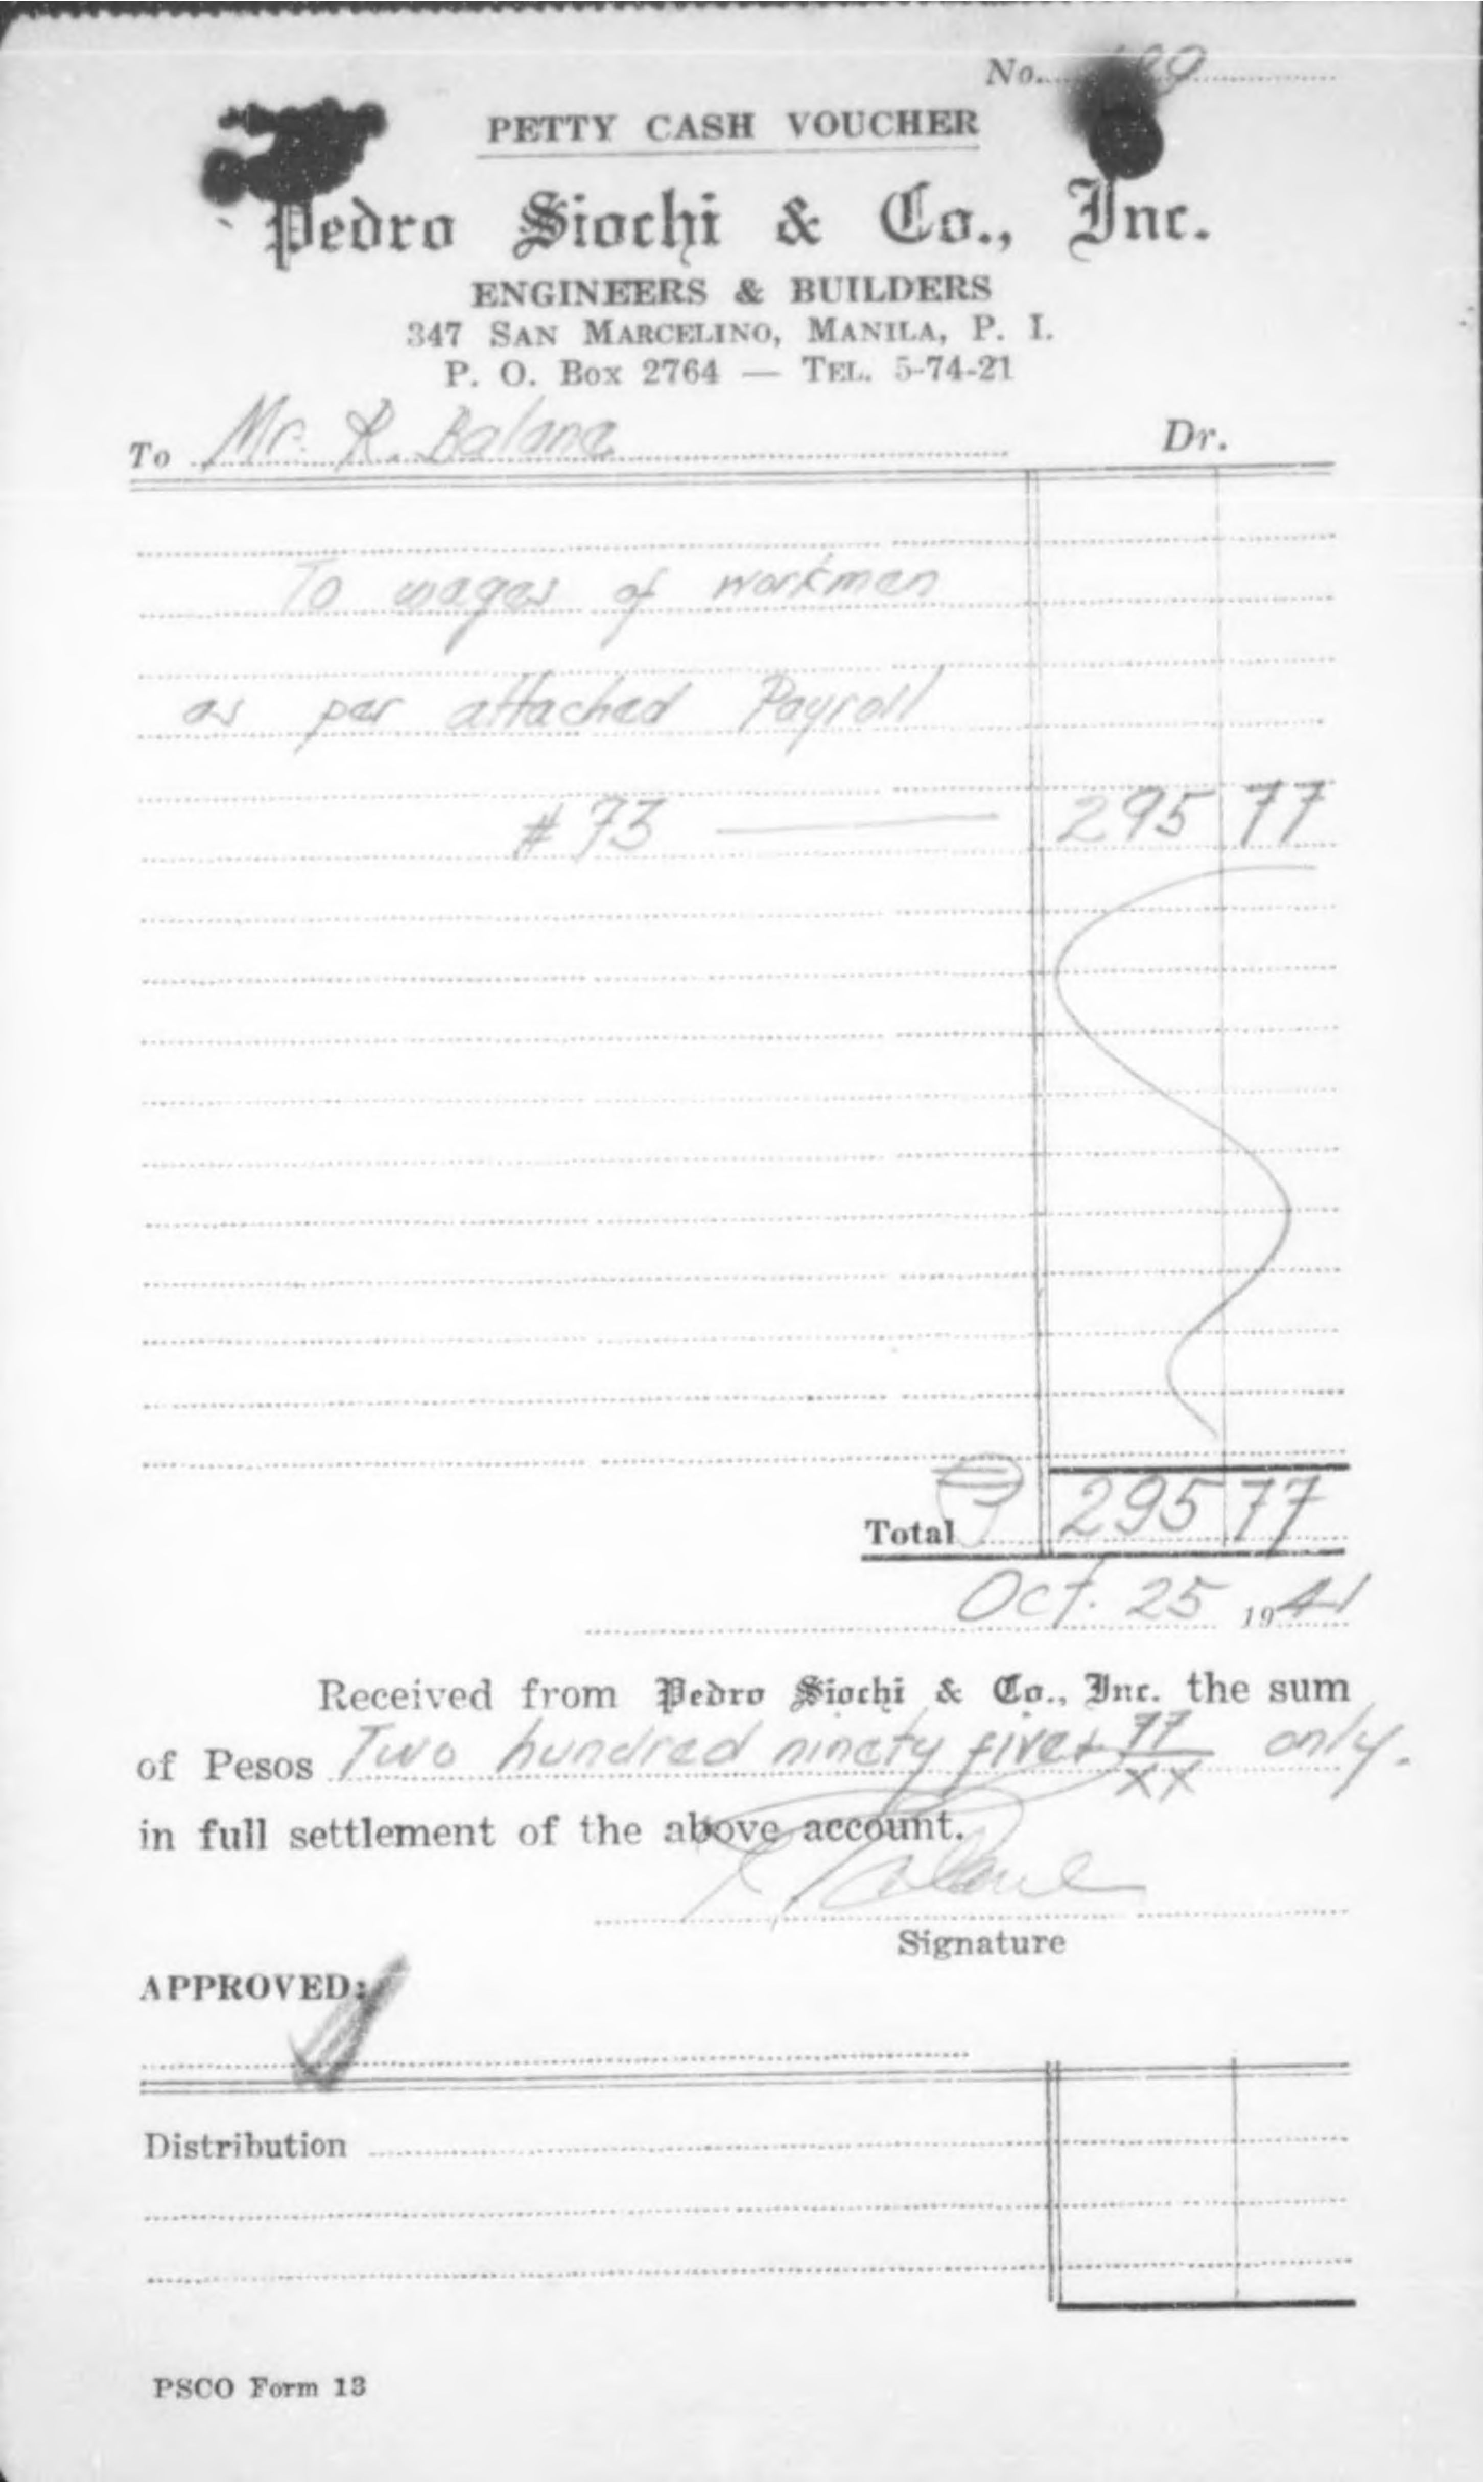 No.
PETTY CASH VOUCHER
Pedro Siochi & Co., Inc.
ENGINEERS & BUILDERS
347 SAN MARCELINO, MANILA, P. I.
P. O. Box 2764 — TEL. 5-74-21
To Mr. R. Balana Dr.
To wages of workmen
as per attached Payroll
# 73 — 295 77
Total ₱ 295 77
Oct. 25 1941
Received from Pedro Siochi & Co., Inc. the sum
of Pesos Two hundred ninety five + 77/xx only.
in full settlement of the above account.
Signature
APPROVED:
Distribution
PSCO Form 13